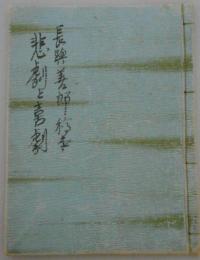 長與善郎稿本
悲劇と喜劇